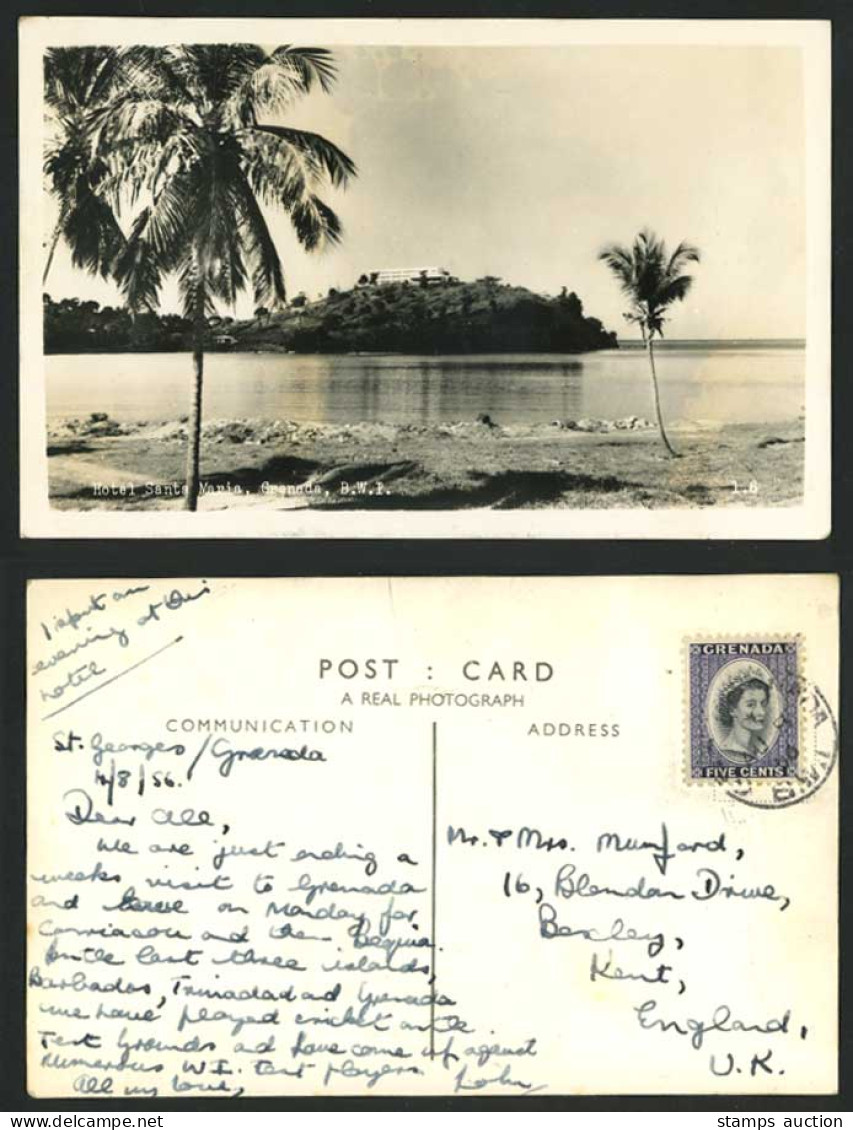 Hotel Santa Maria, Grenada, B.W.I.
1.6
I spent an
evening at this
hotel
POST : CARD
A REAL PHOTOGRAPH
COMMUNICATION
ADDRESS
GRENADA
FIVE CENTS
St. Georges/Grenada
4/8/56.
Dear All,
We are just ending a
weeks visit to Grenada
and leave on Monday for
Carriacou and then Bequia.
In the last three islands,
Barbados, Trinadad and Grenada
we have played cricket on the
Test Grounds and have come up against
numerous W.I. Test players
All my love, John
Mr. & Mrs. Mumford,
16, Blendon Drive,
Bexley,
Kent,
England,
U.K.
stamps auction